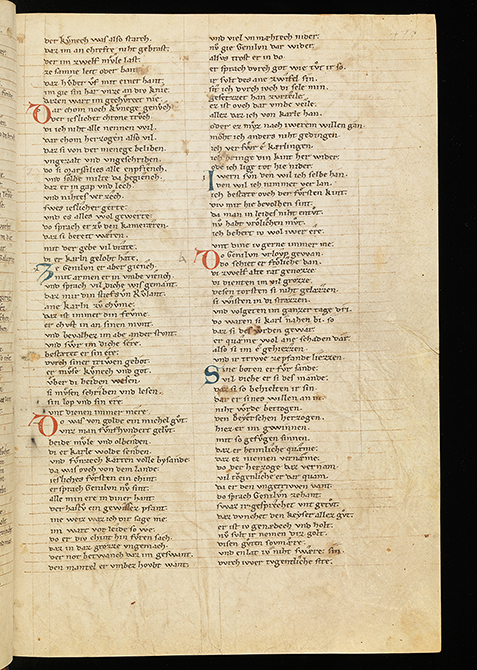 der kv̂nech was also starch.
daz im an chrefte niht gebrast.
der im zwelf mv̂le last.
ze samne leit oder bant.
daz hv̂ber vf mit einer hant.
im gie sin har vnze an div knie.
dar chom noch kv̂nege genv̂ch.
der ieslicher chrone trv̂ch.
di ich niht alle nennen wil.
dar chom herzogen also vil.
daz si von der menege beliben.
vngezalt vnd vngeschriben.
do si marsilies alle enpfiench.
daz er in gap vnd lech.
vnd nihtes verzech.
swes ieslicher gerte.
vnd es alles wol gewerte.
do sprach er zv̂ den kameræren.
daz si bereit wæren.
mit der gebe vil drate.
di er karln gelobt hate.
Ze Genilvn er aber giench.
mit armen er in vmbe viench.
vnd sprach vil diche wis gemant.
daz mir din stiefsv̂n Rv̂lant.
ane karln zv̂ chv̂me.
daz ist immer din frv̂me.
er chvst in an sinen mvnt.
vnd bevalhez im abe ander stvnt.
vnd swr im diche sere.
bestatet er sin ere.
dvrch siner triwen gebot.
er mv̂se kv̂nech vnd got.
vber di heiden wesen.
si mv̂sen schriben vnd lesen.
sin lop vnd sin ere.
vnt dienen immer mere.
Do was von golde ein michel gv̂t.
vnz man fv̂nfhvndert gelv̂t.
beide mv̂le vnd olbenden.
di er karle wolde senden.
vnd fv̂nzech karren volle bysande.
da was ovch von dem lande.
iesliches fv̂rsten ein chint.
er sprach Genilvn nv̂ sint.
alle min ere in diner hant.
der halsv ein gewisser pfant.
ine weiz waz ich dir sage me.
im wart vor leide so we.
do er div chint hin fv̂ren sach.
daz in daz grozze vngemach.
der not betwanch daz im geswant.
den mantel er vmbez hovbt want.
vnd viel vnmæhtech nider.
nv̂ gie Genilvn dar wider.
alsvs trost er in do.
er sprach dvrch got wie tvt ir so.
ir svlt des ane zwifel sin.
sit ich dvrch ivch di sele min.
gesetzet han zvrteile.
er ist ovch dar vmbe veile.
allez daz ich von karle han.
oder er mv̂z nach iwerem willen gan.
mōht ich anders niht gedingen.
ich verfv̂r é kærlingen.
ich bringe vin kint her wider.
ode ich lige tot hie nider.
Iwern sv̂n den wil ich selbe han.
den wil ich nimmer verlan.
ich bestate ovch der fv̂rsten kint.
div mir hie bevolhen sint.
da man in leides niht entvt.
nv̂ habt vrōlichen mv̂t.
ich beherte iv wol iwer ere.
vnt dine iv gerne immer me.
Do Genilvn vrlovp gewan.
do schiet er frōliche dan.
di zwelf alte rat genozze.
di dienten im vil grozze.
vesen torsten si niht gelazzen.
si wisten in di strazzen.
vnd volgeten im ganzer tage dri.
do waren si karl nahen bi. so
daz si des worden gewar.
er quæme wol ane schaden dar.
also si im é gehiezzen.
vnd ir triwe ze pfande liezzen.
Sine boten er fvr sande.
vil diche er si des mande.
daz si so behielten ir sin.
daz er sines willen an in.
niht wrde betrogen.
den beyerschen herzogen.
hiez er im gewinnen.
mit so gefv̂gen sinnen.
daz er heimliche quæme.
daz ez niemen vernæme.
do der herzoge daz vernam.
vil tv̂genliche er dar quam.
da er den vngetriwen vant.
do sprach Genilvn zehant.
swaz ir gesprochet vnt getvt.
daz dvnchet den keyser allez gv̂t.
er ist iv genædech vnd holt.
nv̂ svlt ir nemen diz golt.
disen gvten sovmære.
vnd enlat iv niht swære sin.
dvrch iwer tvgentliche site.